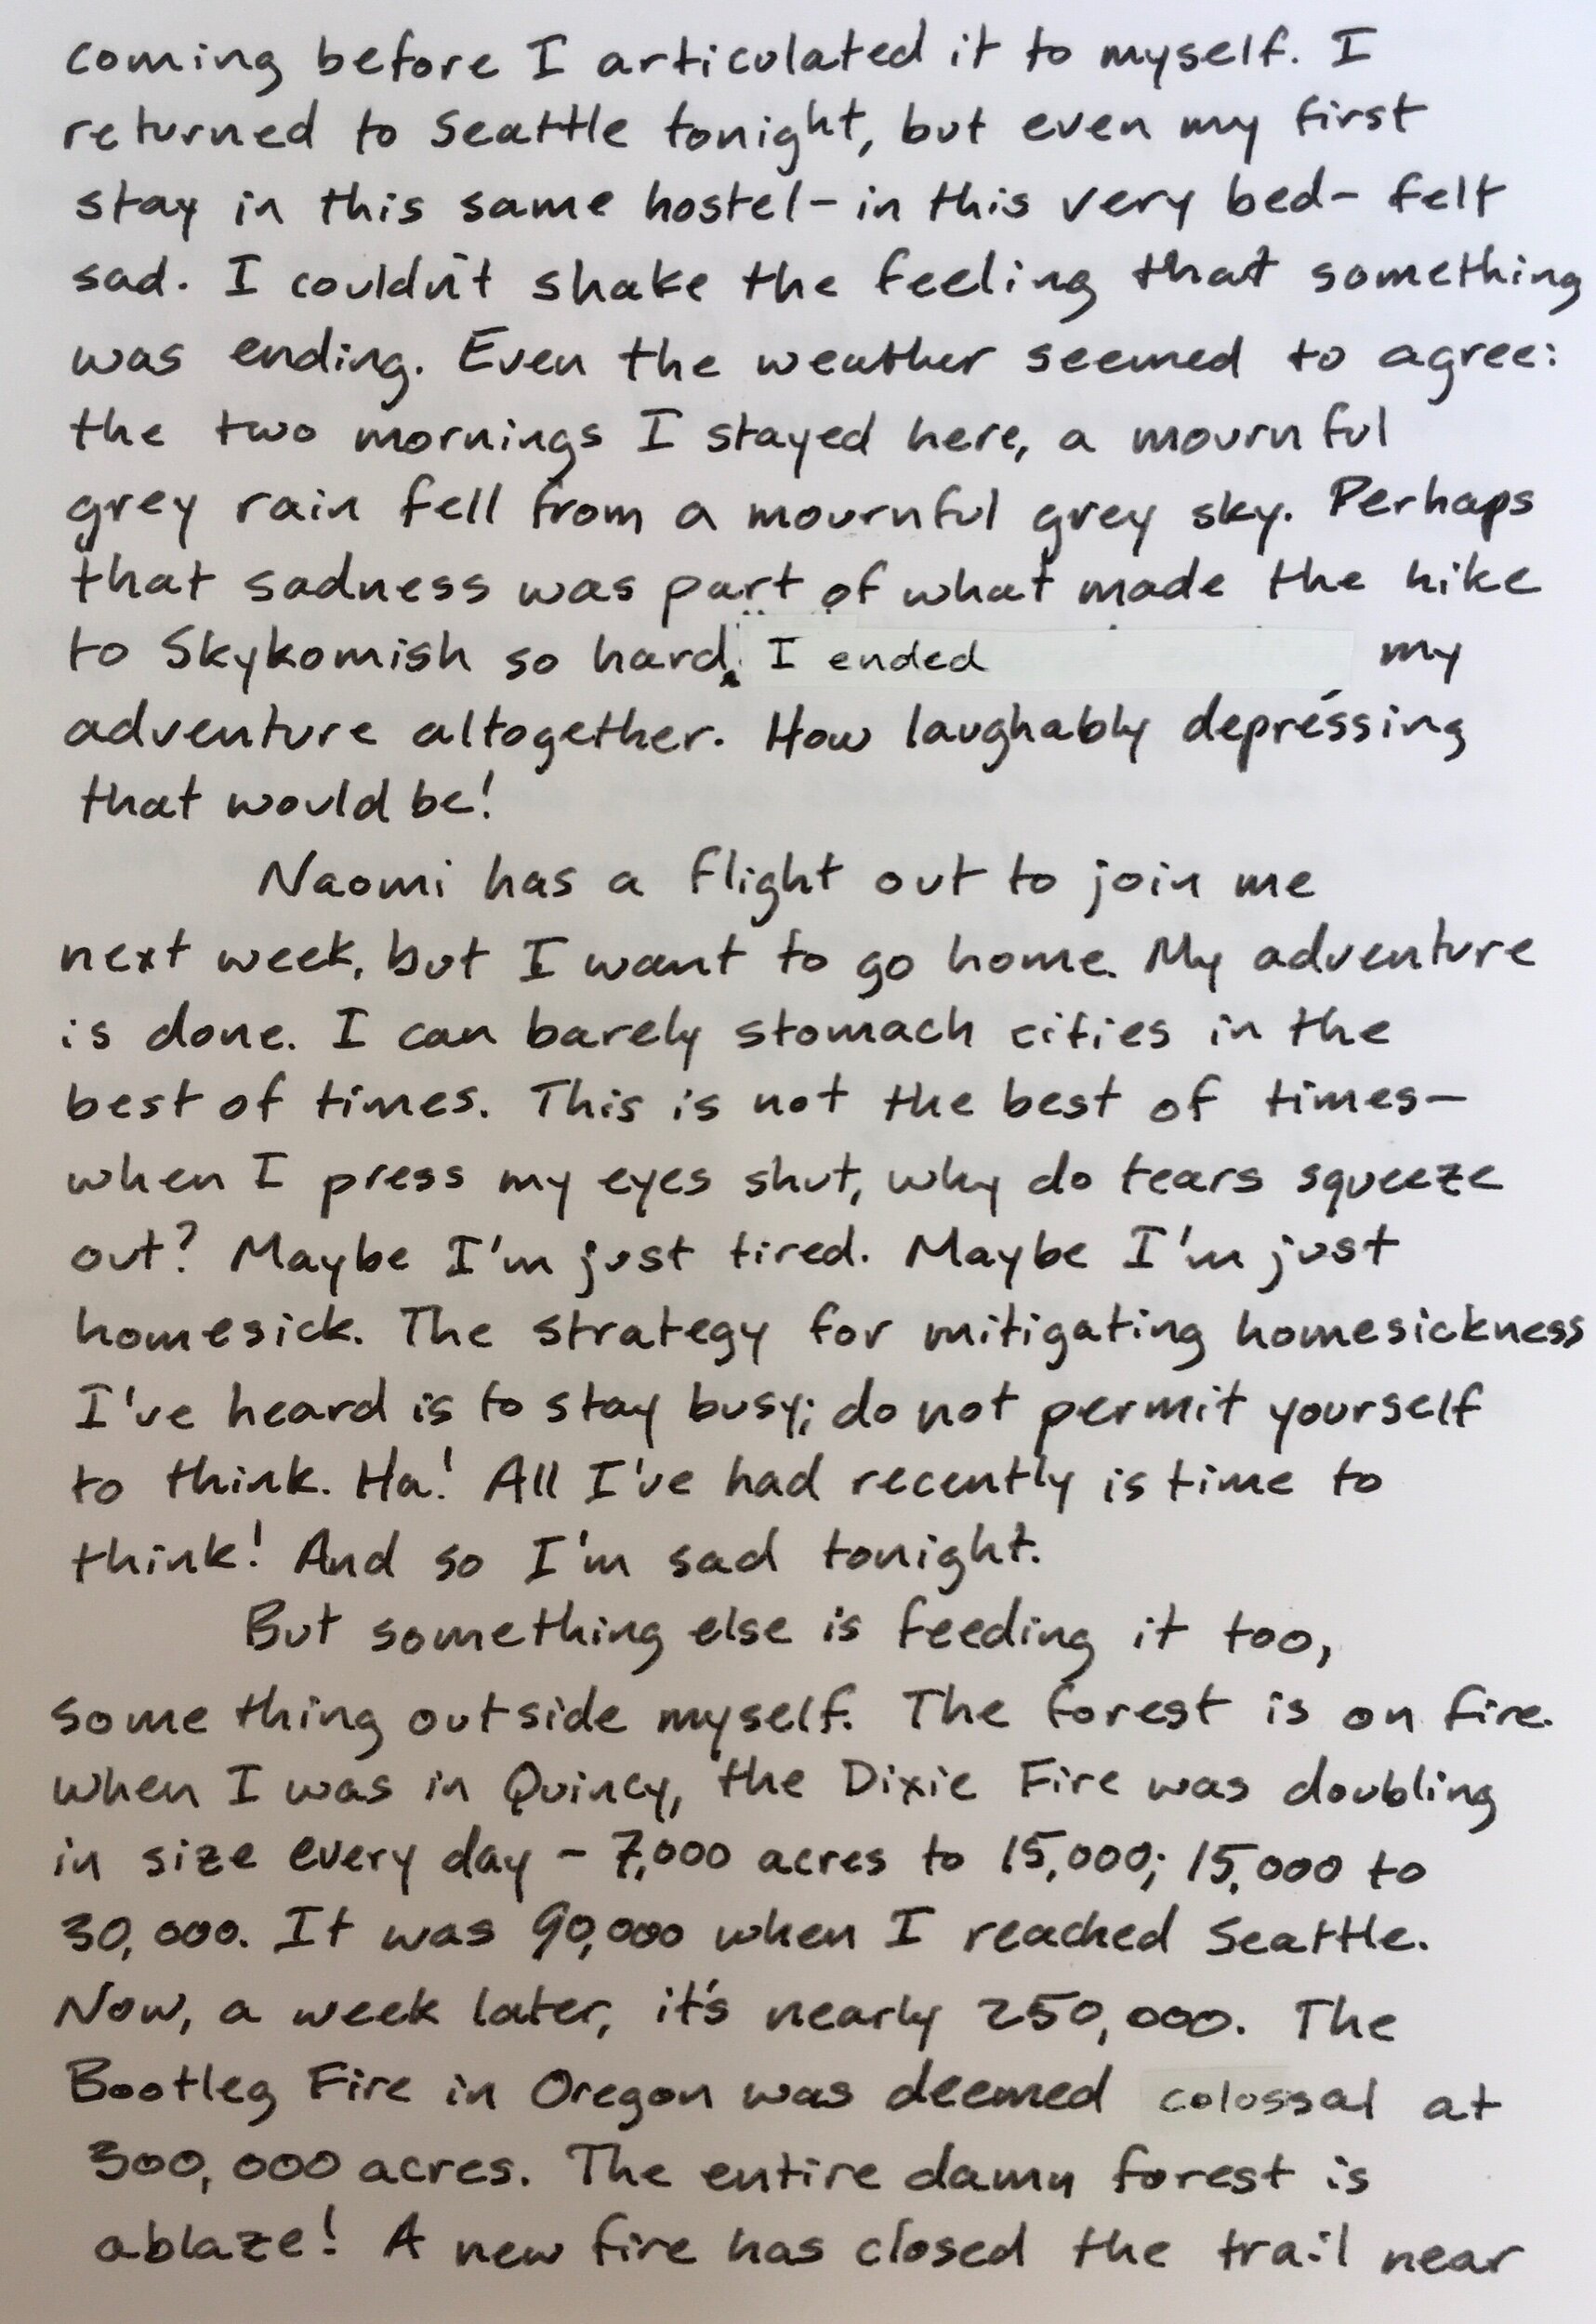 coming before I articulated it to myself. I
returned to Seattle tonight, but even my first
stay in this same hostel - in this very bed - felt
sad. I couldn't shake the feeling that something
was ending. Even the weather seemed to agree:
the two mornings I stayed here, a mournful
grey rain fell from a mournful grey sky. Perhaps
that sadness was part of what made the hike
to Skykomish so hard. I ended my
adventure altogether. How laughably depressing
that would be!
Naomi has a flight out to join me
next week, but I want to go home. My adventure
is done. I can barely stomach cities in the
best of times. This is not the best of times—
when I press my eyes shut, why do tears squeeze
out? Maybe I'm just tired. Maybe I'm just
homesick. The strategy for mitigating homesickness
I've heard is to stay busy; do not permit yourself
to think. Ha! All I've had recently is time to
think! And so I'm sad tonight.
But something else is feeding it too,
something outside myself. The forest is on fire.
When I was in Quincy, the Dixie Fire was doubling
in size every day - 7,000 acres to 15,000; 15,000 to
30,000. It was 90,000 when I reached Seattle.
Now, a week later, it's nearly 250,000. The
Bootleg Fire in Oregon was deemed colossal at
300,000 acres. The entire damn forest is
ablaze! A new fire has closed the trail near